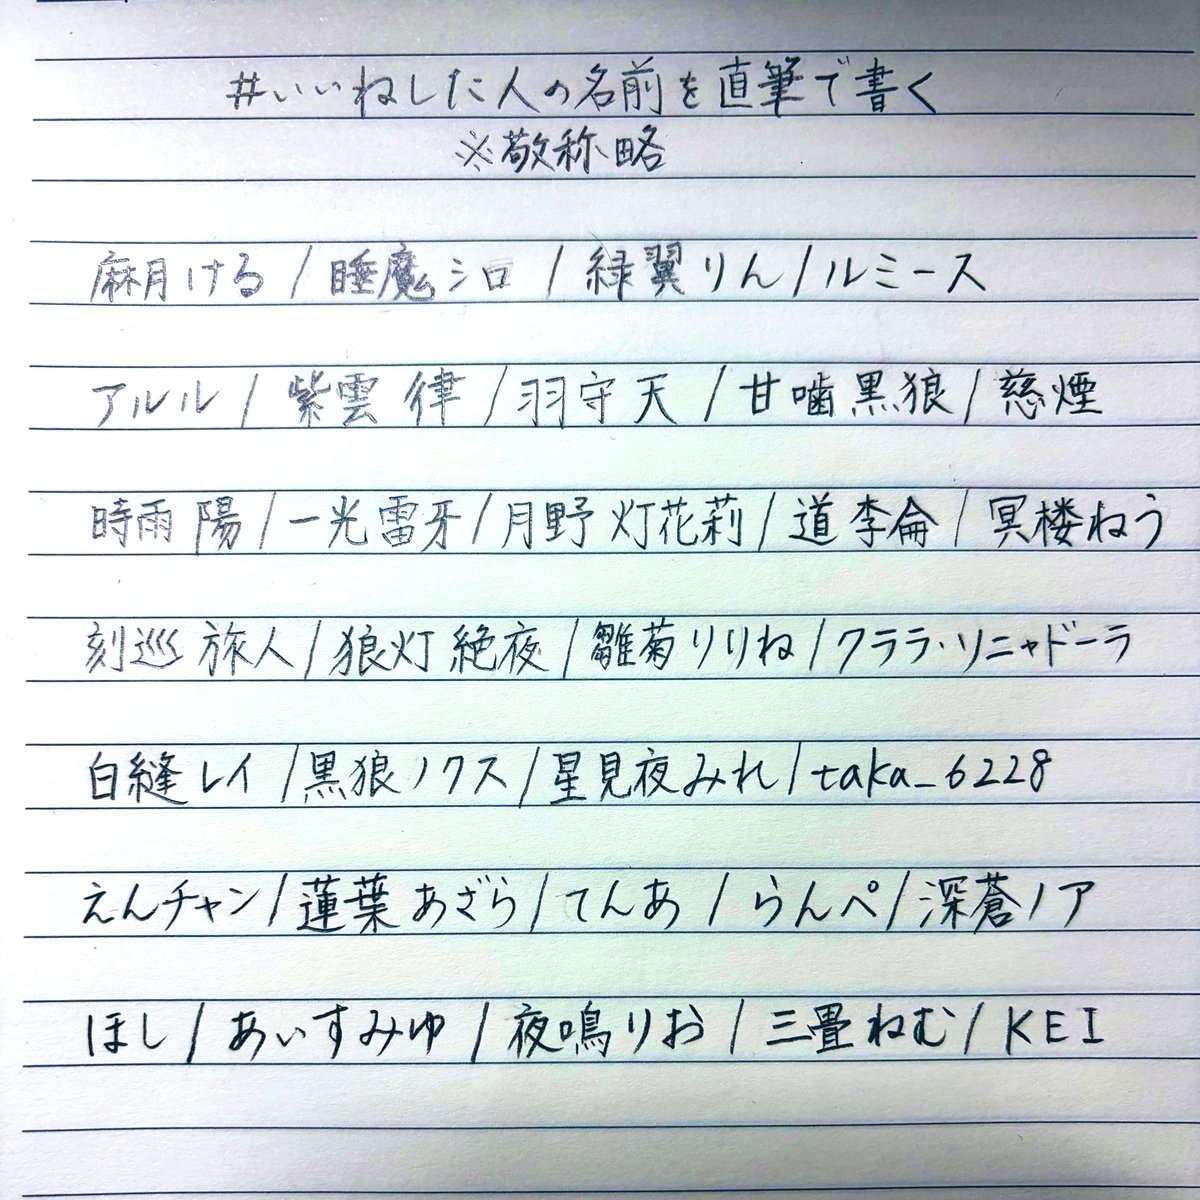 #いいねした人の名前を直筆で書く
※敬称略
麻月ける / 睡魔シロ / 緑翼りん / ルミース
アルル / 紫雲 律 / 羽守 天 / 甘噛黒狼 / 慈煙
時雨 陽 / 一光雷牙 / 月野 灯花莉 / 道李侖 / 冥楼ねう
刻巡 旅人 / 狼灯 絶夜 / 雛菊りりね / クララ・ソニャドーラ
白縫レイ / 黒狼ノクス / 星見夜みれ / taka_6228
えんチャン / 蓮葉あざら / てんあ / らんぺ / 深蒼ノア
ほし / あいすみゆ / 夜鳴りお / 三畳ねむ / KEI